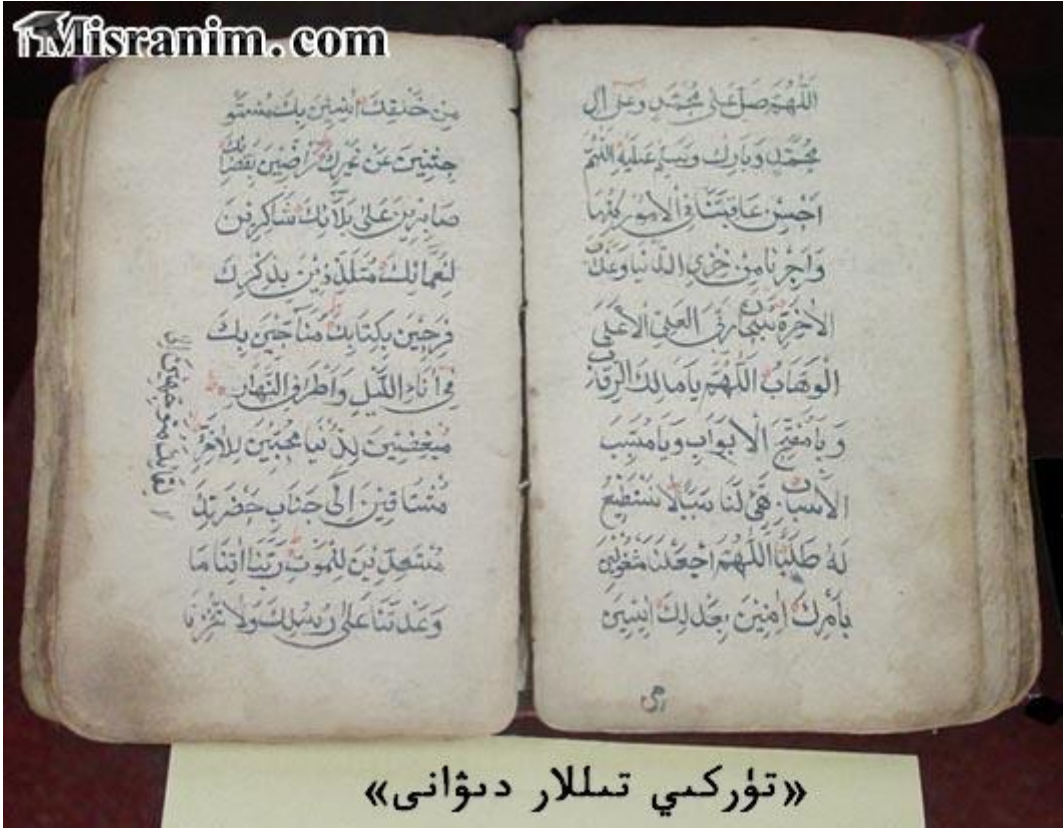 Misranim.com
اَللّٰهُمَّ صَلِّ عَلٰى مُحَمَّدٍ وَعَلٰى اٰلِ
مُحَمَّدٍ وَبَارِكْ وَسَلِّمْ عَلَيْهِ اَللّٰهُمَّ
اَحْسِنْ عَاقِبَتَنَا فِى الْاُمُورِ كُلِّهَا
وَاَجِرْنَا مِنْ خِزْىِ الدُّنْيَا وَعَذَابِ
الْاٰخِرَةِ سُبْحَانَ رَبِّىَ الْعَلِىِّ الْاَعْلَى
الْوَهَّابُ اَللّٰهُمَّ يَا مَالِكَ الرِّقَابِ
وَيَا مُفَتِّحَ الْاَبْوَابِ وَيَا مُسَبِّبَ
الْاَسْبَابِ هَيِّئْ لَنَا سَبَبًا لَا نَسْتَطِيعُ
لَهُ طَلَبًا اَللّٰهُمَّ اجْعَلْنَا مَشْغُولِينَ
بِاَمْرِكَ اٰمِنِينَ بِعَدْلِكَ اٰيِسِينَ
مِنْ خَلْقِكَ اٰنِسِينَ بِكَ مُسْتَو
حِشِينَ عَنْ غَيْرِكَ رَاضِينَ بِقَضَائِكَ
صَابِرِينَ عَلٰى بَلَائِكَ شَاكِرِينَ
لِنَعْمَائِكَ مُتَلَذِّذِينَ بِذِكْرِكَ
فَرِحِينَ بِكِتَابِكَ مُنَاجِينَ بِكَ
فِى اٰنَاءِ اللَّيْلِ وَاَطْرَافِ النَّهَارِ
مُبْغِضِينَ لِلدُّنْيَا مُحِبِّينَ لِلْاٰخِرَةِ
مُشْتَاقِينَ اِلٰى جَنَابِ حَضْرَتِكَ
مُسْتَعِدِّينَ لِلْمَوْتِ رَبَّنَا اٰتِنَا مَا
وَعَدْتَنَا عَلٰى رُسُلِكَ وَلَا تُخْزِنَا
«تۈركىي تىللار دىۋانى»